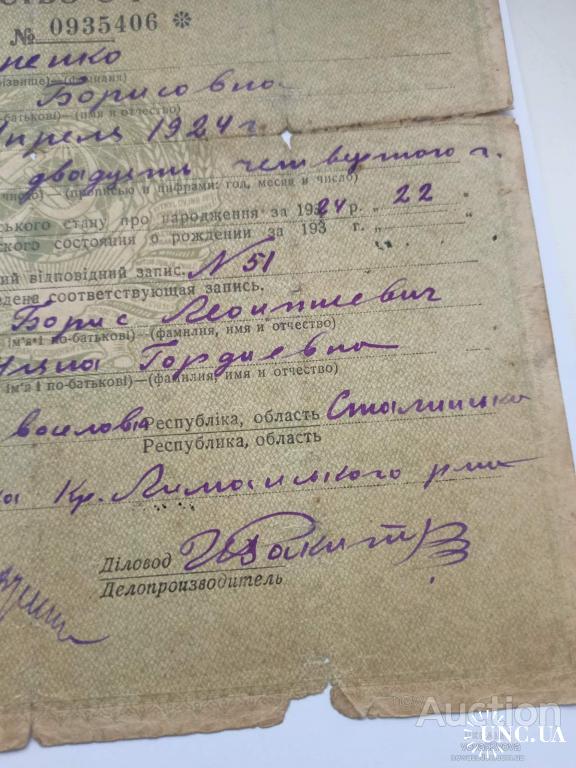 СТВО О Р
№ 0935406 ✻
ненко
різвище)—(фамилия)
Борисовна
батькові)—(имя и отчество)
Апреля 1924 г.
двадцать четвертого г.
число)—(прописью и цифрами: год, месяц и число)
ського стану про народження за 1924 р. „ 22 „
ского состояния о рождении за 193 г. „ „
ий відповідний запис. № 51
едена соответствующая запись.
Борис Леонтиевич
ім'я і по-батькові)—(фамилия, имя и отчество)
Гордиевна
ім'я і по-батькові)—(фамилия, имя и отчество)
Республіка, область Сталинска
Республика, область
Кр. Лиманського р-на
Діловод
Делопроизводитель
Auction
UNC.UA